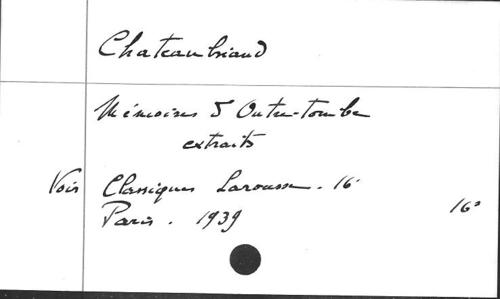 Chateaubriand
Mémoires d'Outre-tombe
extraits
Voir Classiques Larousse. 16
Paris. 1939 16°